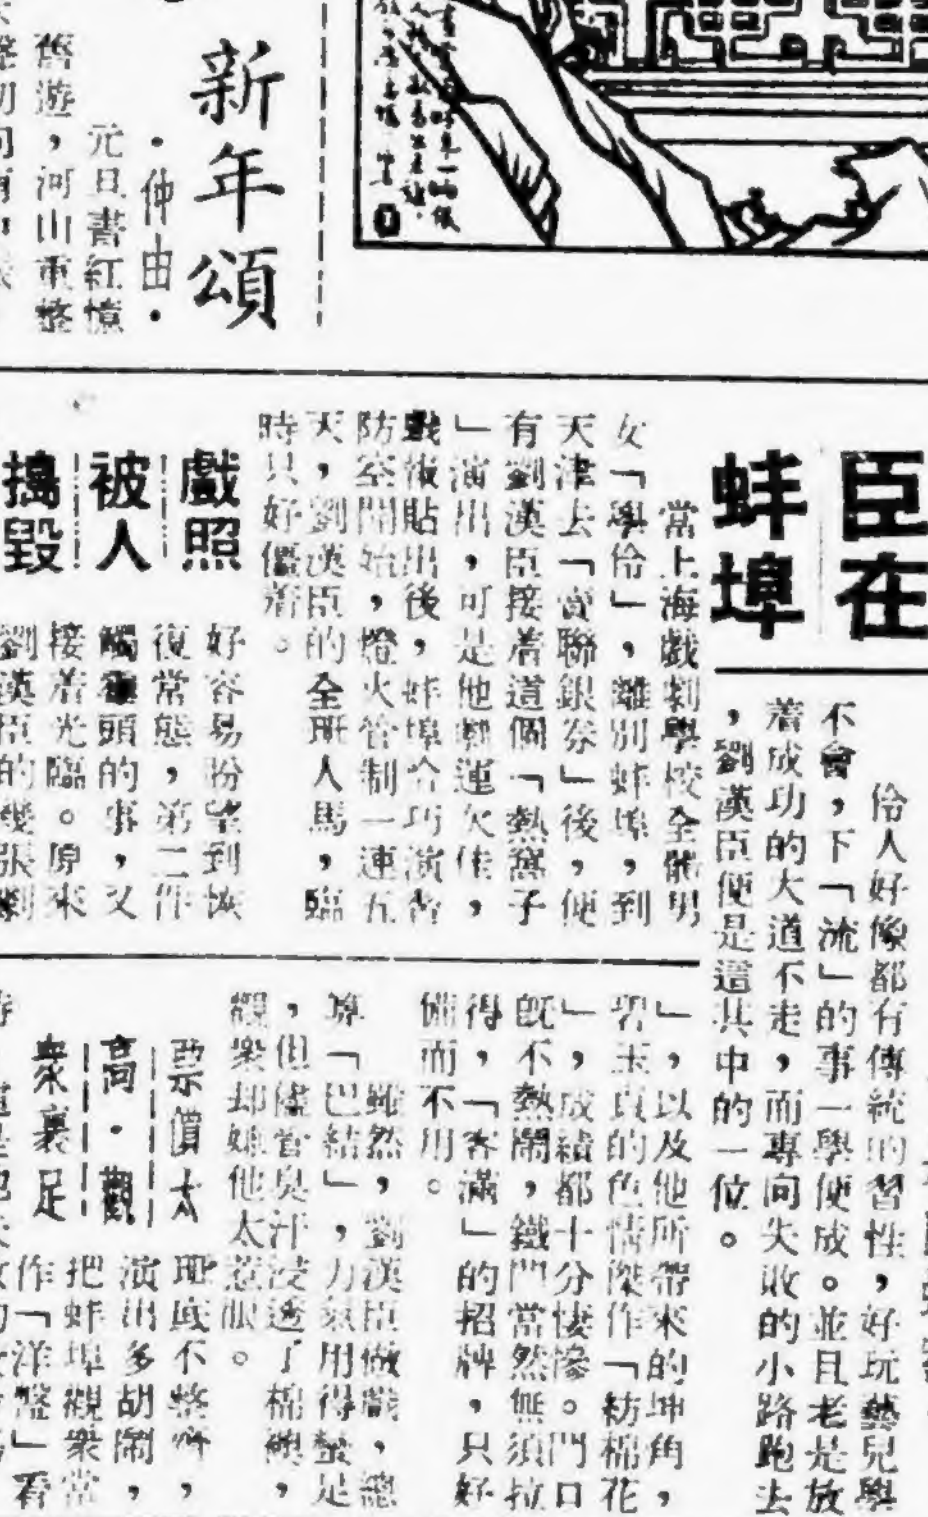 新年頌
·仲由·
元旦書紅憶
舊遊，河山重整
臣在
蚌埠
伶人好像都有傳統的習性，好玩藝兒學
不會，下「流」的事一學便成。並且老是放
着成功的大道不走，而專向失敗的小路跑去
，劉漢臣便是這其中的一位。
當上海戲劇學校全體男
女「學伶」，離別蚌埠，到
天津去「賣聯銀券」後，便
有劉漢臣接着這個「熱窩子
」演出，可是他運欠佳，
戲報貼出後，蚌埠恰巧演習
防空開始，燈火管制一連五
天，劉漢臣的全班人馬，臨
時只好僵着。
戲照
被人
搗毀
好容易盼望到恢
復常態，第二件
觸霉頭的事，又
接着光臨。原來
劉漢臣的幾張劇
」，以及他所帶來的坤角，
碧玉真的色情傑作「紡棉花
」，成績都十分悽慘。門口
既不熱鬧，鐵門當然無須拉
得，「客滿」的招牌，只好
備而不用。
雖然，劉漢臣做戲，總
算「巴結」，力氣用得蠻足
，但儘管臭汗浸透了棉襖，
觀衆却嫌他太惹眼。
票價太
高·觀
衆裹足
班底不整齊，
演出多胡鬧，
把蚌埠觀衆當
作「洋盤」看